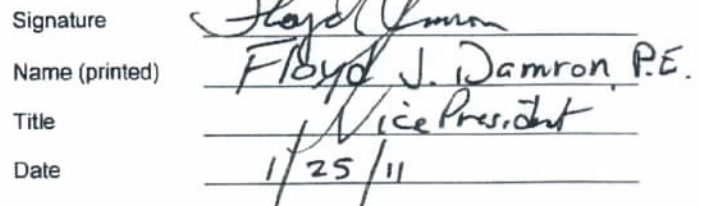 Signature Floyd Damron
Name (printed) Floyd J. Damron, P.E.
Title Vice President
Date 1/25/11